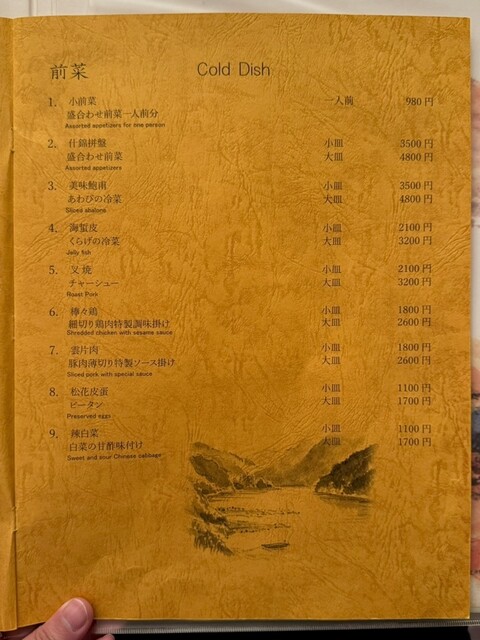 前菜 Cold Dish
1. 小前菜 一人前 980円
盛合わせ前菜一人前分
Assorted appetizers for one person
2. 什錦拼盤 小皿 3500円
盛合わせ前菜 大皿 4800円
Assorted appetizers
3. 美味鮑甫 小皿 3500円
あわびの冷菜 大皿 4800円
Sliced abalone
4. 海蜇皮 小皿 2100円
くらげの冷菜 大皿 3200円
Jelly fish
5. 叉焼 小皿 2100円
チャーシュー 大皿 3200円
Roast Pork
6. 棒々鶏 小皿 1800円
細切り鶏肉特製調味掛け 大皿 2600円
Shredded chicken with sesame sauce
7. 雲片肉 小皿 1800円
豚肉薄切り特製ソース掛け 大皿 2600円
Sliced pork with special sauce
8. 松花皮蛋 小皿 1100円
ピータン 大皿 1700円
Preserved eggs
9. 辣白菜 小皿 1100円
白菜の甘酢味付け 大皿 1700円
Sweet and sour Chinese cabbage